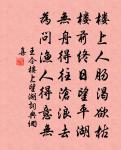 樓上人腸渴欲枯
樓前終日望平湖
無舟得往滄浪去
為問漁人得意無
王令樓上望湖詞典網
喜